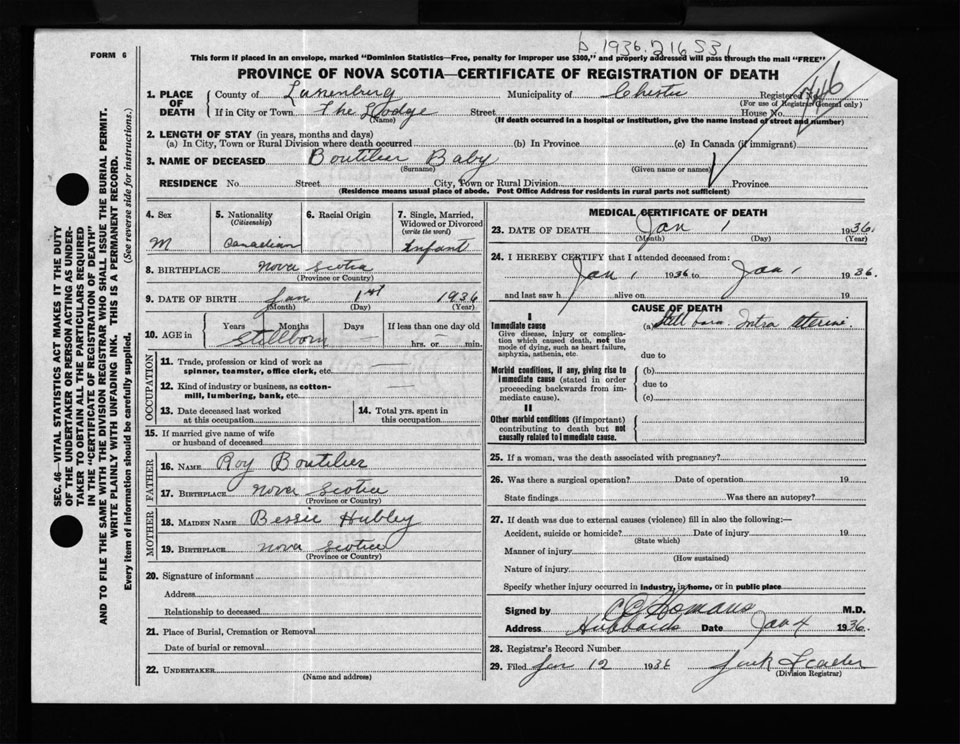 b. 1936. 216 531
FORM 6
This form if placed in an envelope, marked "Dominion Statistics—Free, penalty for improper use $300," and properly addressed will pass through the mail "FREE"
PROVINCE OF NOVA SCOTIA—CERTIFICATE OF REGISTRATION OF DEATH
1. PLACE OF DEATH
County of Lunenburg Municipality of Chester Registered No.
(For use of Registrar General only)
If in City or Town The Lodge Street House No.
(Name) (If death occurred in a hospital or institution, give the name instead of street and number)
2. LENGTH OF STAY (in years, months and days)
(a) In City, Town or Rural Division where death occurred (b) In Province (c) In Canada (if immigrant)
3. NAME OF DECEASED Boutilier Baby
(Surname) (Given name or names)
RESIDENCE No. Street City, Town or Rural Division Province
(Residence means usual place of abode. Post Office Address for residents in rural parts not sufficient)
4. Sex 5. Nationality (Citizenship) 6. Racial Origin 7. Single, Married, Widowed or Divorced (write the word)
M Canadian Infant
8. BIRTHPLACE Nova Scotia
(Province or Country)
9. DATE OF BIRTH Jan 1st 1936
(Month) (Day) (Year)
10. AGE in Years Months Days If less than one day old
Stillborn — — hrs. or min.
OCCUPATION
11. Trade, profession or kind of work as spinner, teamster, office clerk, etc. —
12. Kind of industry or business, as cotton-mill, lumbering, bank, etc. —
13. Date deceased last worked at this occupation
14. Total yrs. spent in this occupation
15. If married give name of wife or husband of deceased
FATHER
16. NAME Roy Boutilier
17. BIRTHPLACE Nova Scotia
(Province or Country)
MOTHER
18. MAIDEN NAME Bessie Hubley
19. BIRTHPLACE Nova Scotia
(Province or Country)
20. Signature of informant
Address
Relationship to deceased
21. Place of Burial, Cremation or Removal
Date of burial or removal
22. UNDERTAKER
(Name and address)
MEDICAL CERTIFICATE OF DEATH
23. DATE OF DEATH Jan 1 1936.
(Month) (Day) (Year)
24. I HEREBY CERTIFY that I attended deceased from:
Jan 1 1936 to Jan 1 1936.
and last saw h alive on 19
CAUSE OF DEATH
I
Immediate cause
Give disease, injury or complication which caused death, not the mode of dying, such as heart failure, asphyxia, asthenia, etc.
(a) Still born. Intra uterine.
due to
Morbid conditions, if any, giving rise to immediate cause (stated in order proceeding backwards from immediate cause).
(b)
due to
(c)
II
Other morbid conditions (if important) contributing to death but not causally related to immediate cause.
25. If a woman, was the death associated with pregnancy?
26. Was there a surgical operation? Date of operation 19
State findings Was there an autopsy?
27. If death was due to external causes (violence) fill in also the following:
Accident, suicide or homicide? Date of injury 19
(State which)
Manner of injury
(How sustained)
Nature of injury
Specify whether injury occurred in industry, in home, or in public place
Signed by M.D.
Address Hubbards Date Jan 4 1936.
28. Registrar's Record Number
29. Filed Jan 12 1936 Jack
(Division Registrar)
SEC. 46—VITAL STATISTICS ACT MAKES IT THE DUTY
OF THE UNDERTAKER OR PERSON ACTING AS UNDER-
TAKER TO OBTAIN ALL THE PARTICULARS REQUIRED
IN THE "CERTIFICATE OF REGISTRATION OF DEATH"
AND TO FILE THE SAME WITH THE DIVISION REGISTRAR WHO SHALL ISSUE THE BURIAL PERMIT.
WRITE PLAINLY WITH UNFADING INK. THIS IS A PERMANENT RECORD.
Every item of information should be carefully supplied. (See reverse side for instructions.)